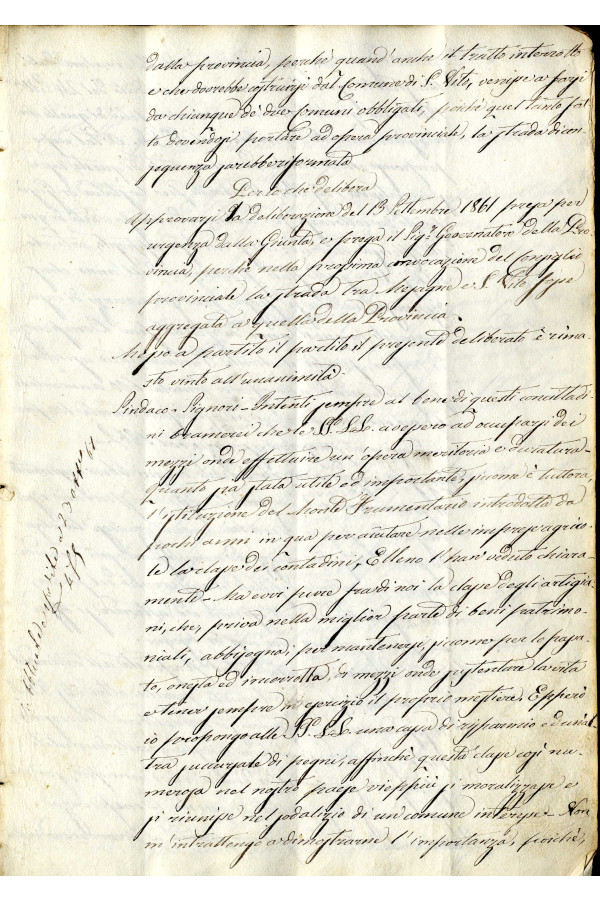 dalla provincia, perchè quand'anche il tratto interrotto
e che dovrebbe costruirsi dal Comune di S. Vito, venisse a farsi
da chiunque de' due Comuni obbligati, poichè quel tanto fat-
to dovendosi portare ad opera provinciale, la strada di con-
seguenza sarebbe riformata
Perlochè delibera
Approvarsi la deliberazione del 13 Settembre 1861 presa per
urgenza dalla Giunta, e prega il Sig.r Governatore della Pro-
vincia, perchè nella prossima convocazione del Consiglio
provinciale la strada tra Mesagne e S. Vito fosse
aggregata a quelle della Provincia.
Messo a partito il partito il presente deliberato è rima-
sto vinto all'unanimità
Sindaco - Signori - Intenti sempre al bene di questi concittadi-
ni bramerei che le SS. LL. avessero ad occuparsi dei
mezzi onde effettuire un'opera meritoria e duratura -
quanto sia stata utile ed importante, siccome è tuttora,
l'istituzione del Monte Frumentario introdotta da
pochi anni in qua per aiutare nelle imprese agrico-
le la classe dei contadini, Elleno l'han veduto chiara-
mente - Ma evvi pure fra di noi la classe degli artigia-
ni, che, priva nella miglior parte di beni patrimo-
niali, abbisogna, per mantenersi, siccome per lo passa-
to, onesta ed incorrotta, di mezzi onde sostentare la vita
e tener sempre in esercizio il proprio mestiere. Epperò
io propongo alle SS. LL. una cassa di risparmio ed un'al-
tra succursale di pegni, affinchè questa classe così nu-
merosa nel nostro paese vieppiù si moralizzasse e
si riunisse nel sodalizio di un comune interesse - Non
m'intrattengo a dimostrarne l'importanza, poichè,
61